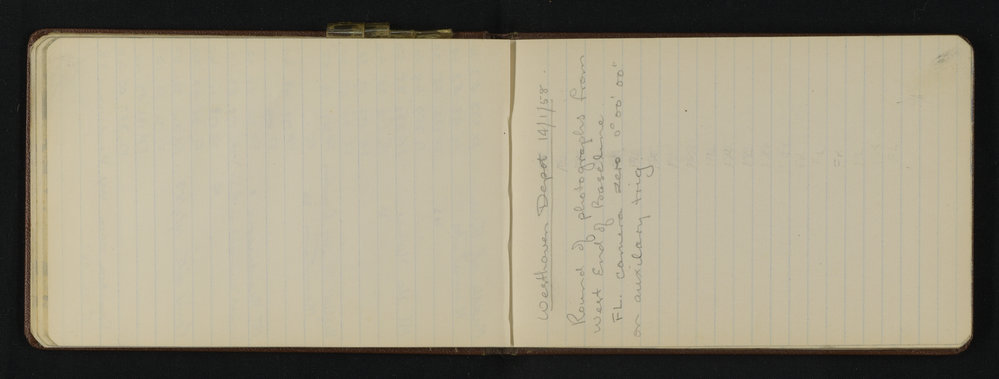 Westhaven Depot 14/1/58.
Round of photographs from
West End of Baseline.
FL. camera zero 0° 00' 00"
on auxilary trig